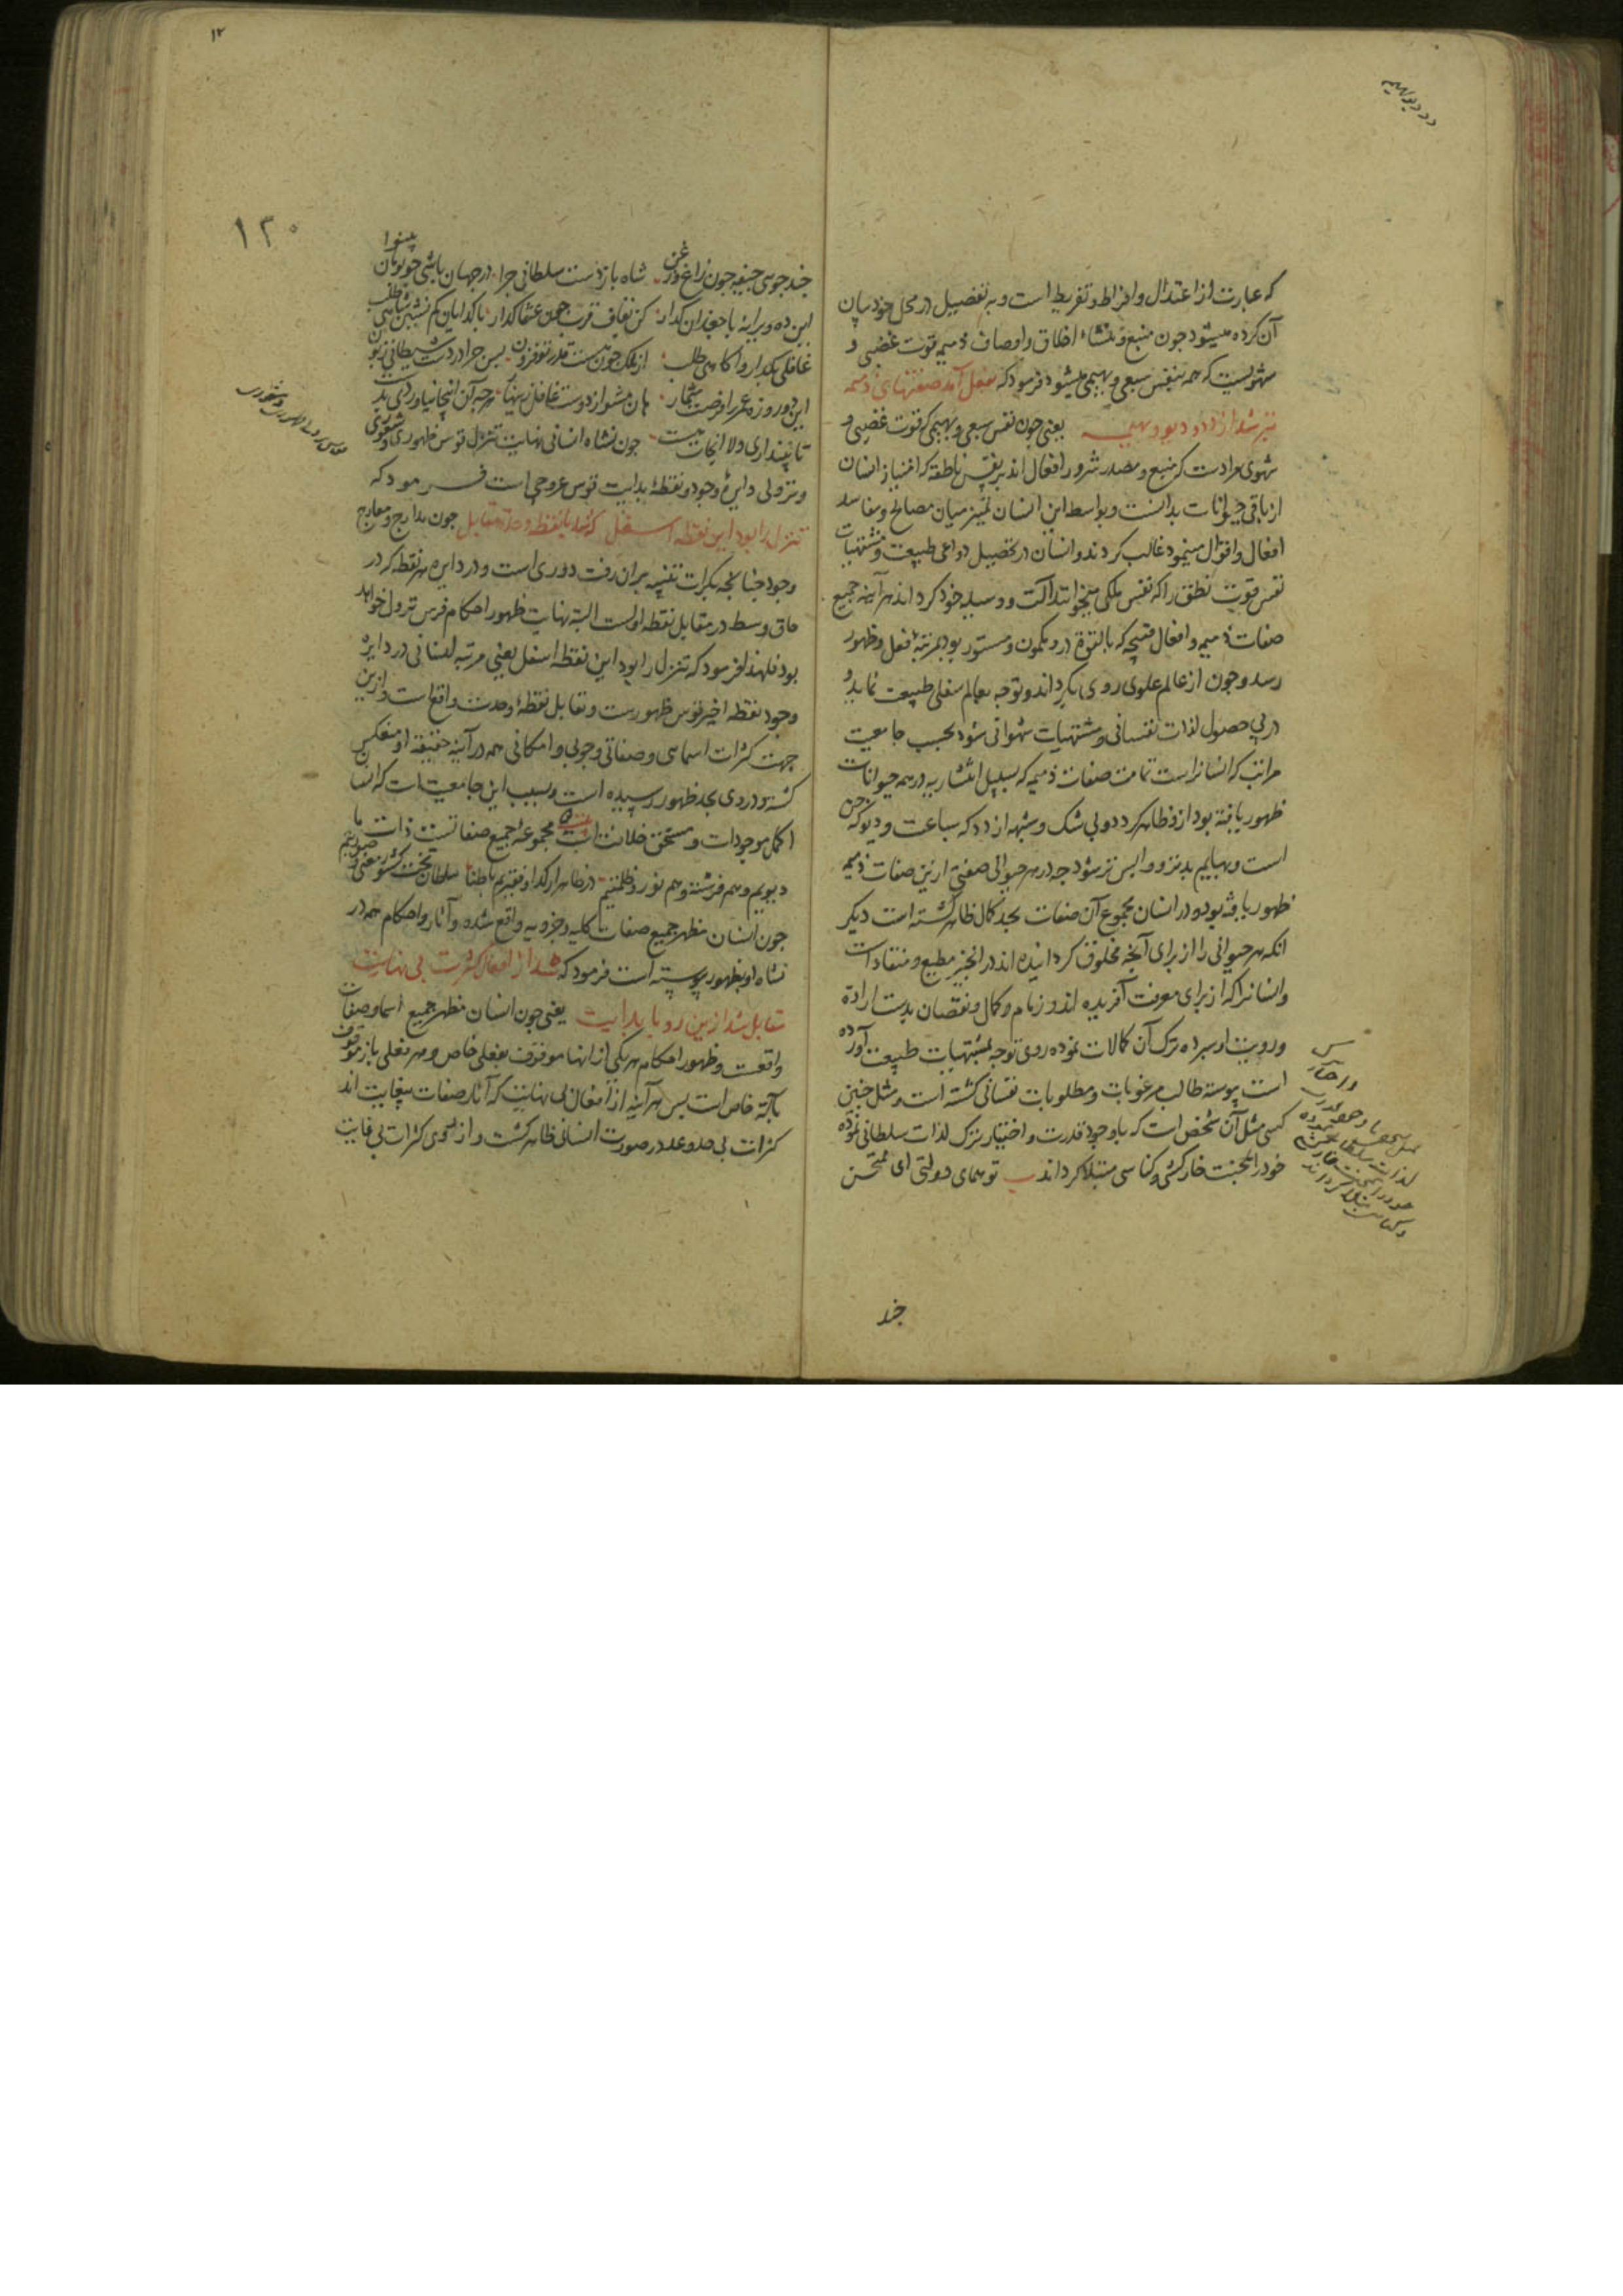 که عبارت از اعتدال و افراط و تفریط است و به تفصیل در محل خود بیان
آن کرده میشود چون منبع و منشاء اخلاق و اوصاف ذمیمه قوت غضبی و
شهویست که همه بنفس سبعی و بهیمی میشود فرمود که بفعل آمد صفتهای ذمیمه
بتر شد از دد و دیو و بهیمه یعنی چون نفس سبعی و بهیمی که قوت غضبی و
شهوی مرادست که منبع و مصدر شرور افعال اند بر نفس ناطقه که امتیاز انسان
از باقی حیوانات بدانست و بواسطه این انسان تمیز میان مصالح و مفاسد
افعال و اقوال مینمود غالب کردند و انسان در تحصیل دواعی طبیعت و مشتهیات
نفس قوت نطق را که نفس ملکی میخوانند آلت و وسیله خود کرداند هر آینه جمیع
صفات ذمیمه و افعال قبیحه که بالقوة در و مکمون و مستور بود بمرتبه فعل و ظهور
رسد و چون از عالم علوی روی بکرداند و توجه بعالم سفلی طبیعت نماید و
در پی حصول لذات نفسانی و مشتهیات شهوانی شود بحسب جامعیت
مراتب که انسانراست تمامت صفات ذمیمه که بسبیل انتشار به در همه حیوانات
ظهور یافته بود از و ظاهر کردد و بی شک و شبهه از دد که سباعست و دیو که جن
است و بهایم بدتر و واپس تر شود چه در هر حیوانی صفتی ازین صفات ذمیمه
ظهور یافته بود و در انسان مجموع آن صفات بحد کمال ظاهر کشته است دیکر
انکه هر حیوانی را از برای آنچه مخلوق کردانیده اند در انچیز مطیع و منقاد است
و انسانرا که از برای معرفت آفریده اند و زمام و کمال و نقصان بدست ارادة
و رویت او سپرده ترک آن کمالات نموده روی توجه بمشتهیات طبیعت آورده
است پیوسته طالب مرغوبات و مطلوبات نفسانی کشته است و مثل چنین
کسی مثل آن شخص است که باوجود قدرت و اختیار ترک لذات سلطانی نموده
خود را بمحنت خارکشی و کناسی مبتلا کرداند تو همای دولتی ای ممتحن
چند
۱۲۰
چند جوی جیفه چون زاغ و زغن شاه باز دست سلطانی چرا در جهان باشی چو بومان بینوا
این ده ویرانه با جغدان کذار کن بقاف قرب چون عنقا کذار با کدایان کم نشین شاهی طلب
غافلی بکذار و آکاهی طلب از ملک چون هست قدر تو فزون پس چرا در دست شیطانی زبون
این دو روزه عمر را فرصت شمار هان مشو از دوست غافل زینهار هر چه آن اینجا نیاوردی بدست
تا نپنداری دلا انجات هست چون نشاه انسانی نهایت تنزل قوس ظهوری و شعوری
و نزولی دایرۀ وجود و نقطۀ بدایت قوس عروجی است فرمود که
تنزل را بود این نقطه اسفل که شد با نقطه وحدت مقابل چون مدارج و معارج
وجود چنانچه بکرات تنبیه بران رفت دوری است و در دایره هر نقطه که در
حاق وسط در مقابل نقطه اولست البته نهایت ظهور احکام قوس نزول خواهد
بود فلهذا فرمود که تنزل را بود این نقطه اسفل یعنی مرتبه انسانی در دایرۀ
وجود نقطه اخیر قوس ظهورست و تقابل نقطۀ وحدت واقع است و ازین
جهت کثرات اسمایی و صفاتی وجوبی و امکانی همه در آینه حقیقة او منعکس
کشته و در وی بحد ظهور رسیده است و بسبب این جامعیت است که انسان
اکمل موجودات و مستحق خلافت است بیت مجموعۀ جمیع صفاتست ذات ما
دیویم و هم فرشته و هم نور و ظلمتیم در ظاهر ار کدا و فقیریم باطنا سلطان تخت کشور معنی و صورتیم
چون انسان مظهر جمیع صفات کلیه و جزویه واقع شده و آثار و احکام همه در
نشاه او بظهور پیوسته است فرمود که شد از افعال کثرت بی نهایت
مقابل شد ازین رو با بدایت یعنی چون انسان مظهر جمیع اسما و صفات
واقعست و ظهور احکام هر یکی از انها موقوفست بفعلی خاص و هر فعلی باز موقوف
بآلة خاص است پس هر آینه از افعال بی نهایت که آثار صفات بیغایت اند
کثرات بی حد و عد در صورت انسانی ظاهر کشت و از سوی کثرات بی غایت